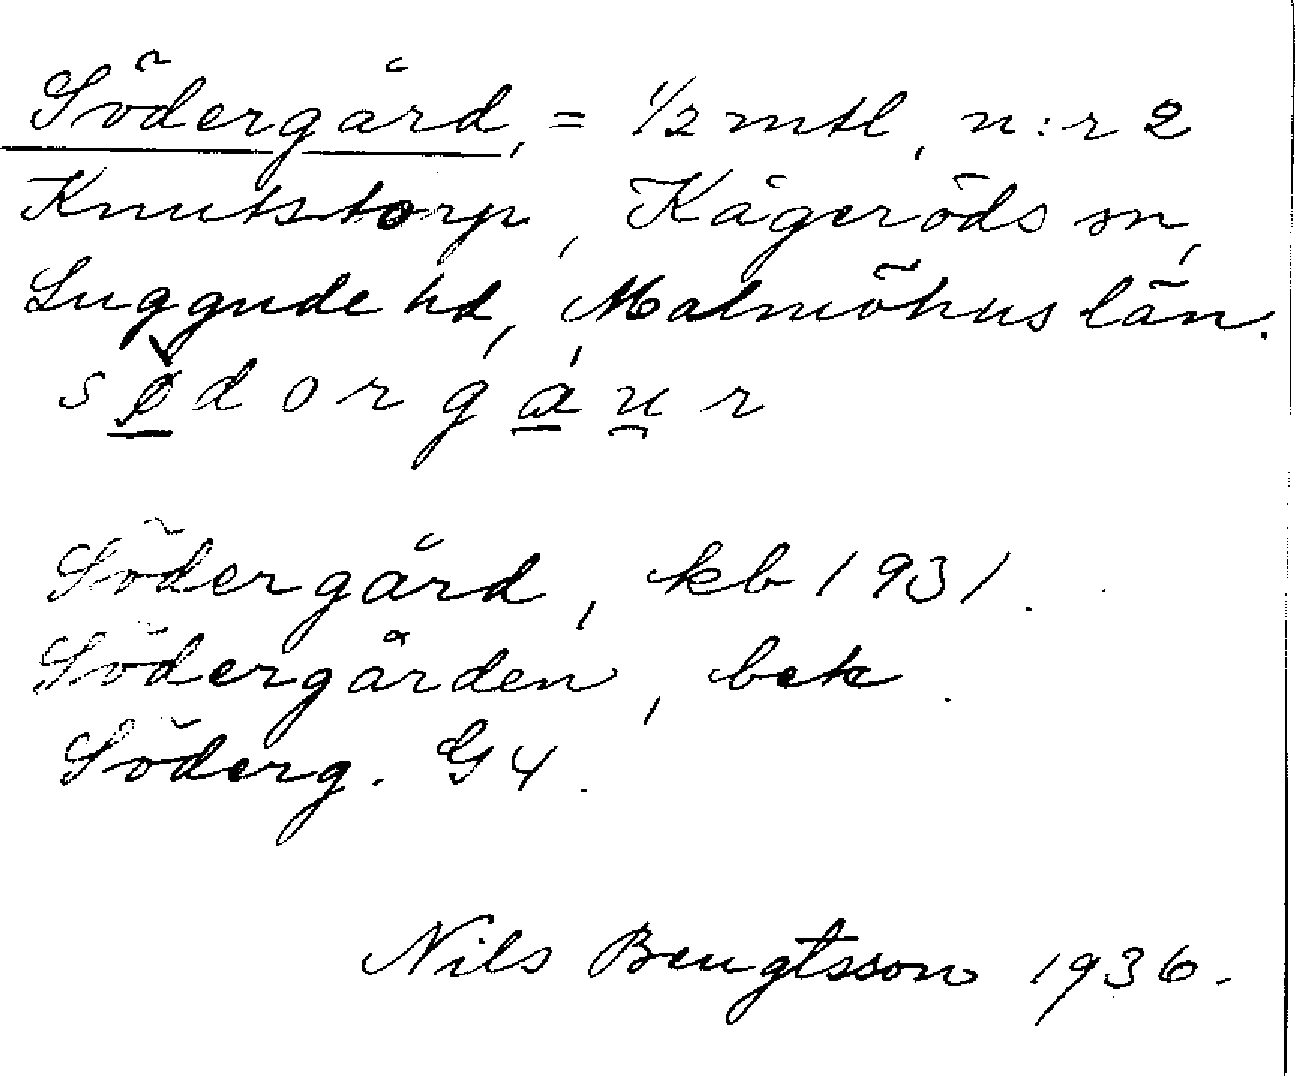 Södergård, = 1/2 mtl, n:r 2
Knutstorp, Kågeröds sn,
Luggude hd, Malmöhus län.
sø̠̀dorgá̠u̯r
Södergård, kb 1931.
Södergården, bek.
Söderg. G4.
Nils Bengtsson 1936.